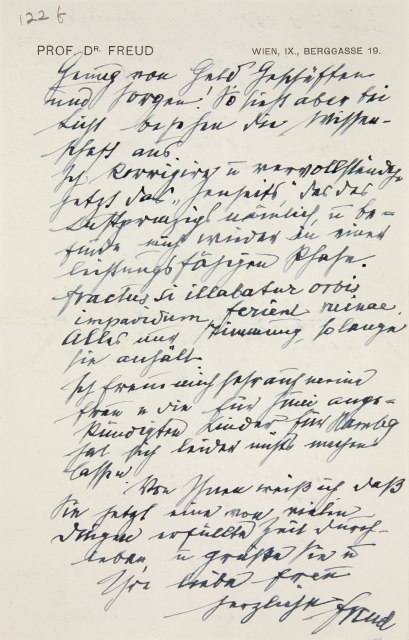 122 f
PROF. DR. FREUD WIEN, IX., BERGGASSE 19.
Genug von Geld Geschäften
und Sorgen! So sieht aber bei
Licht besehen die Wissen-
schaft aus
Ich korrigire u vervollständige
jetzt das „Jenseits" des
Lustprinzips nämlich, u be-
finde mich wieder in einer
leistungsfähigen Phase.
Fractus si illabatur orbis
impavidum ferient ruinae.
Alles nur Stimmung, solange
sie anhält.
Ich freue mich sehr auch meine
Frau u die für zwei ange-
kündigten Kinder für
hat sich leider nichts machen
lassen
Von Ihnen weiß ich daß
Sie jetzt eine von vielen
Dingen erfüllte Zeit durch-
leben u grüße Sie u
Ihre liebe Frau
herzlich Freud